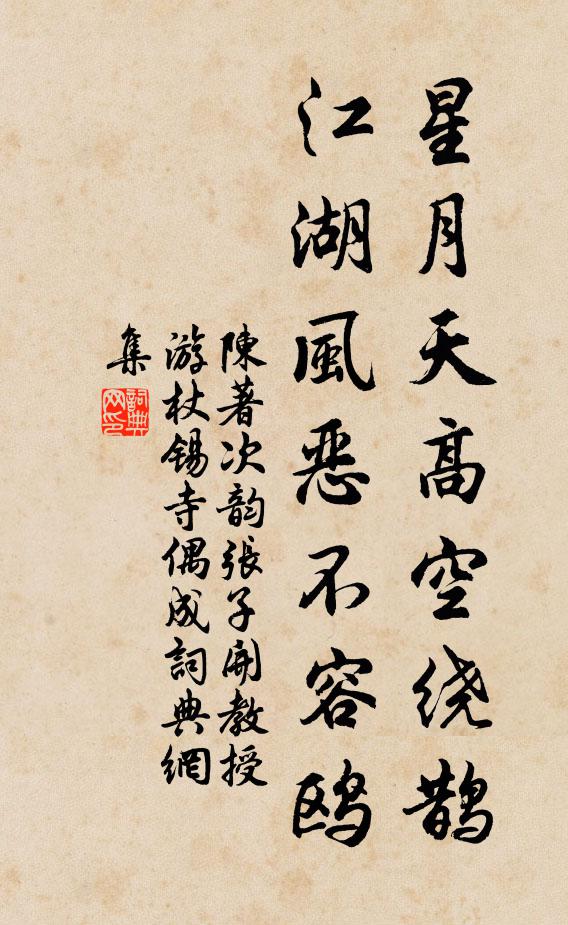 星月天高空绕鹊
江湖風恶不容鸥
陳著次韵張子開教授
游杖锡寺偶成詞典網
集
詞典
网印